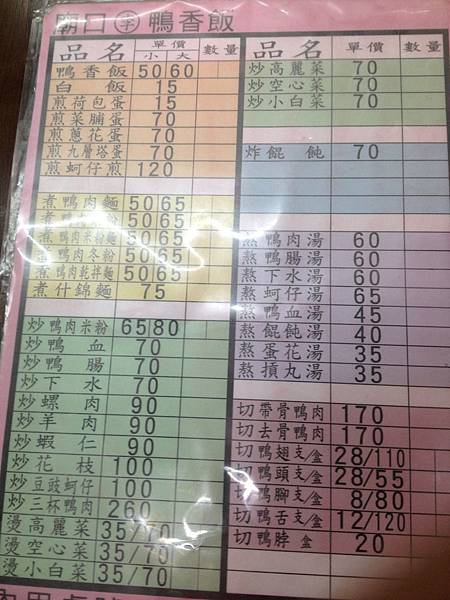 廟口 鴨香飯
品名 單價 小 大 數量
鴨香飯 50 60
白飯 15
煎荷包蛋 15
煎菜脯蛋 70
煎蔥花蛋 70
煎九層塔蛋 70
煎蚵仔煎 120
煮鴨肉麵 50 65
煮鴨肉米粉 50 65
煮鴨肉米粉麵 50 65
煮鴨肉冬粉 50 65
煮鴨肉乾拌麵 50 65
煮什錦麵 75
炒鴨肉米粉 65 80
炒鴨血 70
炒鴨腸 70
炒下水 70
炒螺肉 90
炒羊肉 90
炒蝦仁 90
炒花枝 100
炒豆豉蚵仔 100
炒三杯鴨肉 260
燙高麗菜 35/70
燙空心菜 35/70
燙小白菜 35/70
品名 單價 數量
炒高麗菜 70
炒空心菜 70
炒小白菜 70
炸餛飩 70
熬鴨肉湯 60
熬鴨腸湯 60
熬下水湯 60
熬蚵仔湯 65
熬鴨血湯 45
熬餛飩湯 40
熬蛋花湯 35
熬摃丸湯 35
切帶骨鴨肉 170
切去骨鴨肉 170
切鴨翅支/盒 28/110
切鴨頭支/盒 28/55
切鴨腳支/盒 8/80
切鴨舌支/盒 12/120
切鴨脖 盒 20